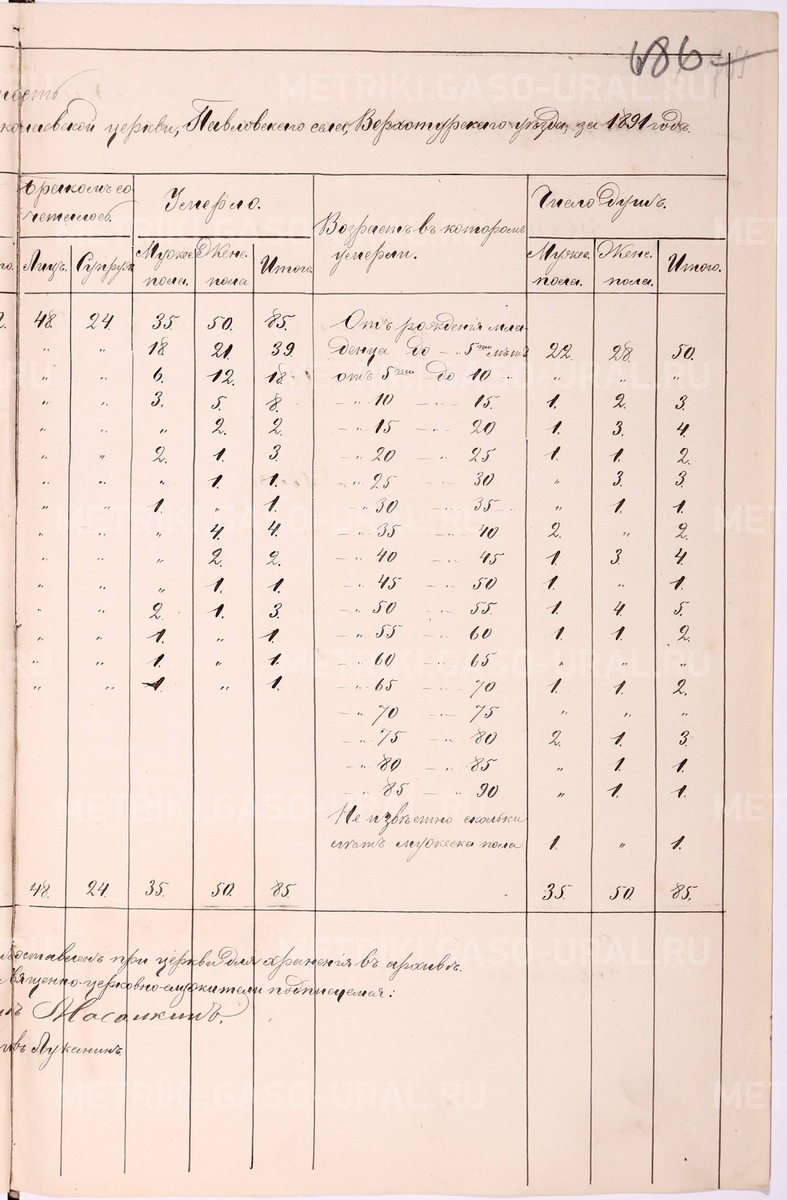 686
ность
колаевской церкви, Павловскаго села, Верхотурскаго уѣзда, за 1891 годъ.
бракомъ со-
четалось.
Умерло.
Возрастъ въ которомъ
умерли.
Число душъ.
Лицъ. Супруж. Мужес. пола. Женс. пола Итого. Мужес. пола. Женс. пола. Итого.
48. 24. 35. 50. 85. Отъ рожденія мла-
„ „ 18 21. 39. денца до „ 5ти лѣтъ 22. 28. 50.
„ „ 6. 12. 18. отъ 5ти до 10 „ „ „ „
„ „ 3. 5. 8. —„ 10 —„ 15. 1. 2. 3.
„ „ „ 2. 2. —„ 15 —„ 20 1. 3. 4.
„ „ 2. 1. 3. —„ 20 —„ 25 1. 1. 2.
„ „ „ 1. 1. —„ 25 —„ 30 „ 3. 3.
„ „ 1. „ 1. —„ 30 —„ 35 „ 1. 1.
„ „ „ 4. 4. —„ 35 —„ 40 2. „ 2.
„ „ „ 2. 2. —„ 40 —„ 45 1. 3. 4.
„ „ „ 1. 1. —„ 45 —„ 50 1. „ 1.
„ „ 2. 1. 3. —„ 50 —„ 55 1. 4 5.
„ „ 1. „ 1. —„ 55 —„ 60 1. 1. 2.
„ „ 1. „ 1. —„ 60 —„ 65 „ „ „
„ „ 1. „ 1. —„ 65 —„ 70 1. 1. 2.
—„ 70 —„ 75 „ „ „
—„ 75 —„ 80 2. 1. 3.
—„ 80 —„ 85 „ 1. 1.
—„ 85 —„ 90 „ 1. 1.
Не извѣстно скольки
лѣтъ мужеска пола 1. „ 1.
48. 24. 35. 50. 85. 35. 50. 85.
оставленъ при церкви для храненія въ архивѣ.
Священно-церковно-служители подписуемся:
METRIKI.GASO-URAL.RU